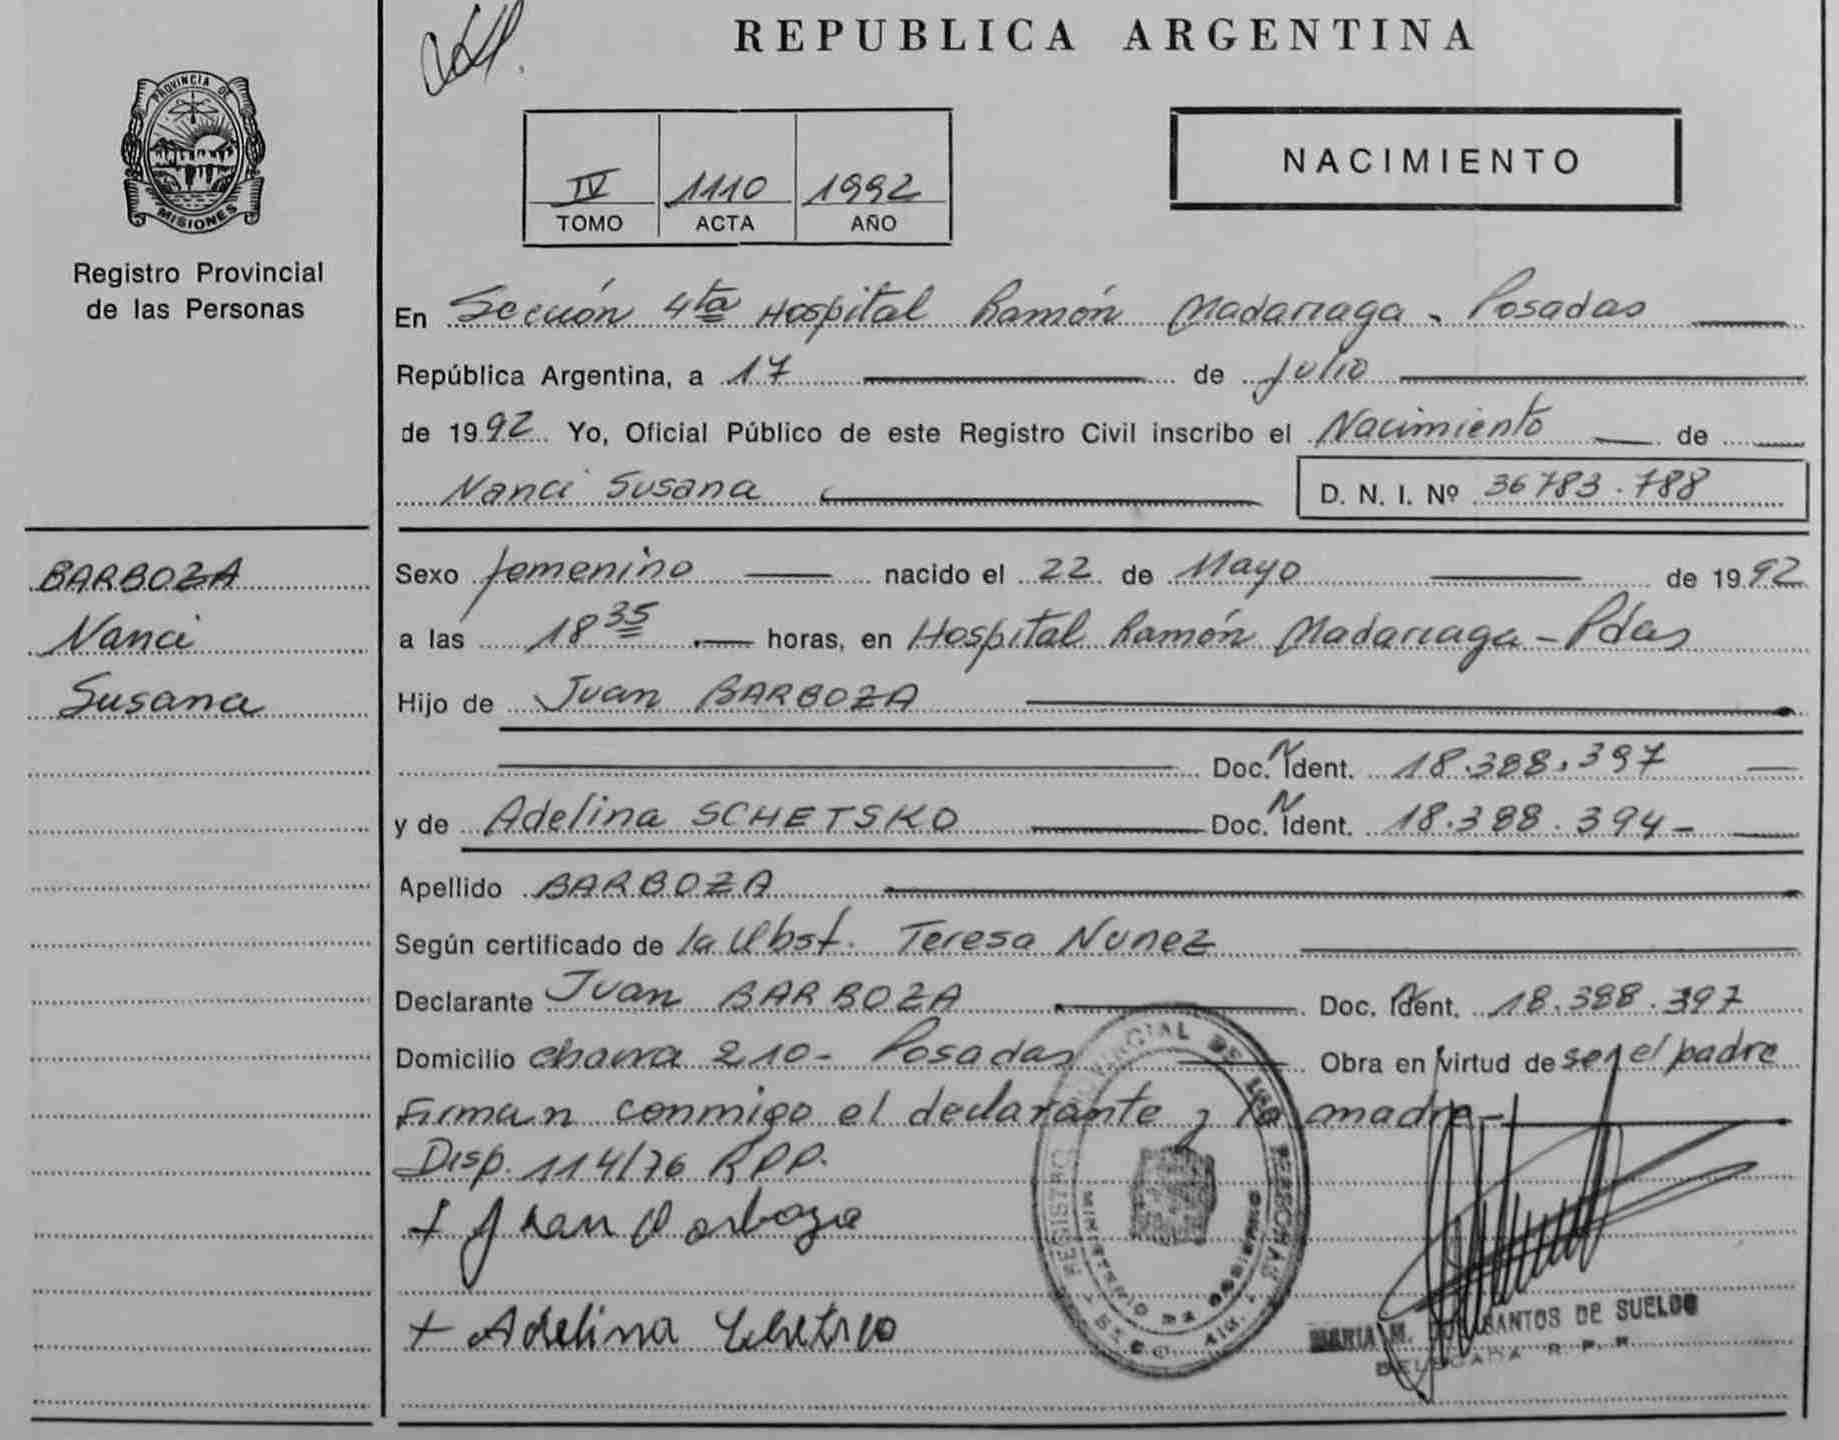 REPUBLICA ARGENTINA
PROVINCIA DE
MISIONES
Registro Provincial
de las Personas
IV 1110 1992
TOMO ACTA AÑO
NACIMIENTO
En Sección 4ta Hospital Ramón Madariaga - Posadas
República Argentina, a 17 de Julio
de 1992 Yo, Oficial Público de este Registro Civil inscribo el Nacimiento de
Nanci Susana D. N. I. Nº 36783.788
BARBOZA
Nanci
Susana
Sexo femenino nacido el 22 de Mayo de 1992
a las 18 35 horas, en Hospital Ramón Madariaga - Pdas
Hijo de Juan BARBOZA
Doc. N Ident. 18.388.397
y de Adelina SCHETSKO Doc. N Ident. 18.388.394-
Apellido BARBOZA
Según certificado de la Obst. Teresa Nunez
Declarante Juan BARBOZA Doc. Ident. 18.388.397
Domicilio chacra 210- Posadas Obra en virtud de ser el padre
Firman conmigo el declarante y la madre-
Disp. 114/76 RPP.
+ Juan Barboza
+ Adelina
REGISTRO PROVINCIAL DE LAS PERSONAS
MINISTERIO DE GOBIERNO
MARIA M. DOS SANTOS DE SUELDO
DELEGADA R.P.P.